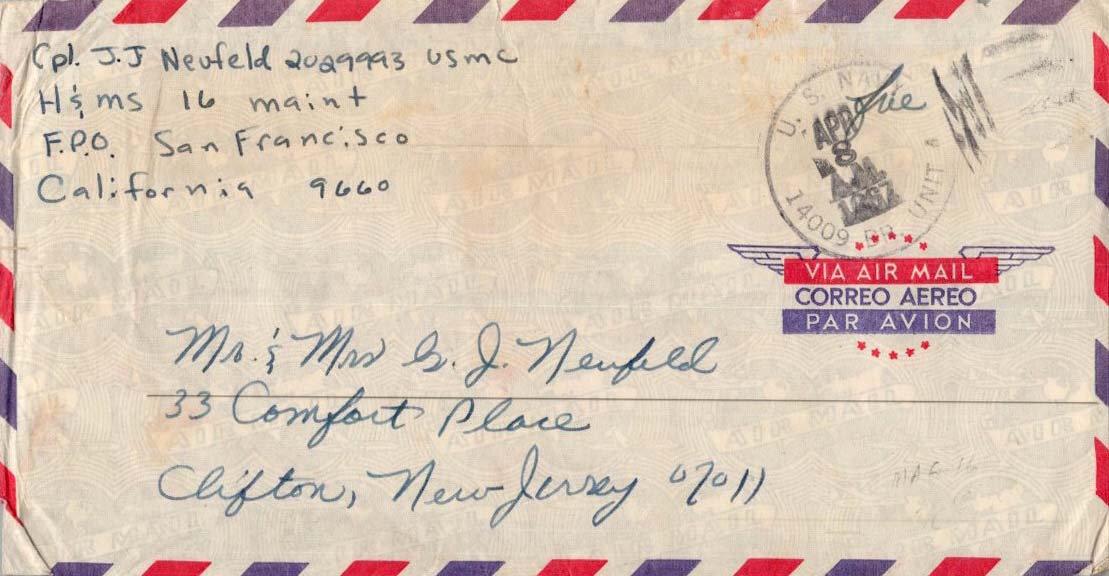 Cpl. J.J Neufeld 2029993 USMC
H & MS 16 maint
F.P.O. San Francisco
California 9660
U. S. NAVY
Free
APR
8
A.M.
14009 BR. UNIT
VIA AIR MAIL
CORREO AEREO
PAR AVION
Mr. & Mrs G. J. Neufeld
33 Comfort Place
Clifton, New Jersey 07011
MAG 16